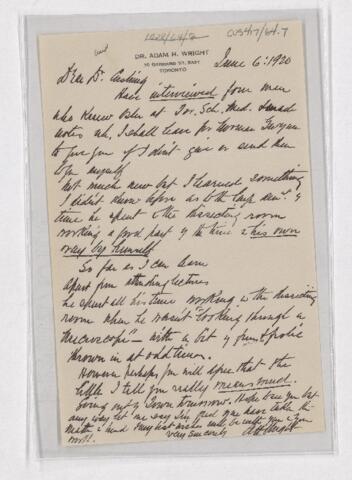 CUS417/64.7
DR. ADAM H. WRIGHT
30 GERRARD ST. EAST
TORONTO
June 6: 1920
Dear Dr. Cushing
Have interviewed four men
who knew Osler at Tor. Sch. Med. & made
notes wh. I shall leave for Norman Gwyn
to give you if I don't give or send them
to you myself
Not much new but I learned something
I didn't know before as to the large amt. of
time he spent in the dissecting room
working a good part of the time in his own
way by himself
So far as I can learn
apart from attending lectures
he spent all his time working in the dissecting
room when he wasn't "looking through a
microscope" – with a bit of fun & frolic
thrown in at odd times.
However perhaps you will agree that the
little I tell you really means much.
Going out of town tomorrow. Hope to see you but
any way let me say I'm glad you have taken this
matter in hand. My best wishes will be with you in your
work.
Very sincerely
A H Wright